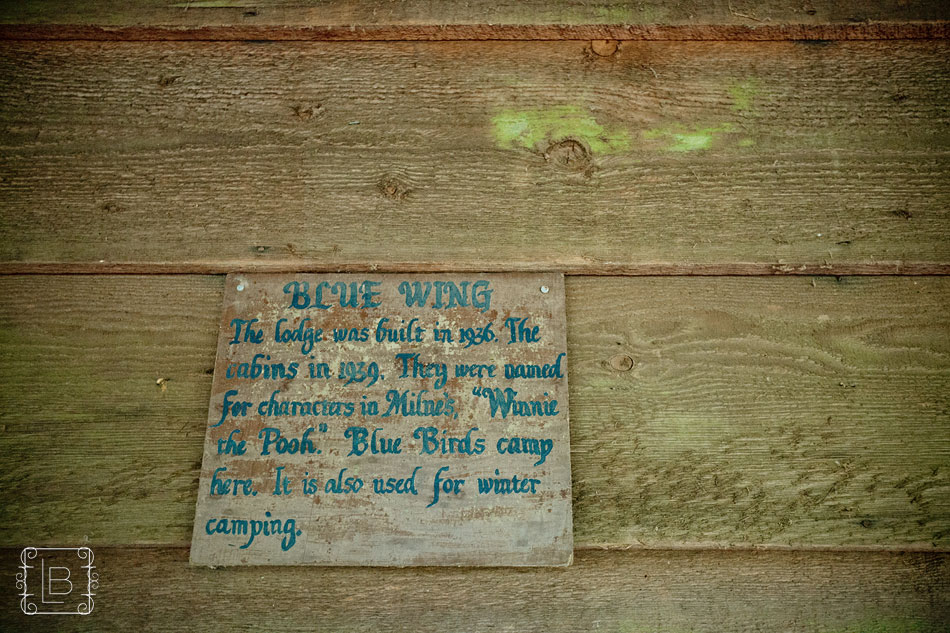 BLUE WING
The lodge was built in 1936. The
cabins in 1939. They were named
for characters in Milne's, "Winnie
the Pooh." Blue Birds camp
here. It is also used for winter
camping.
LB